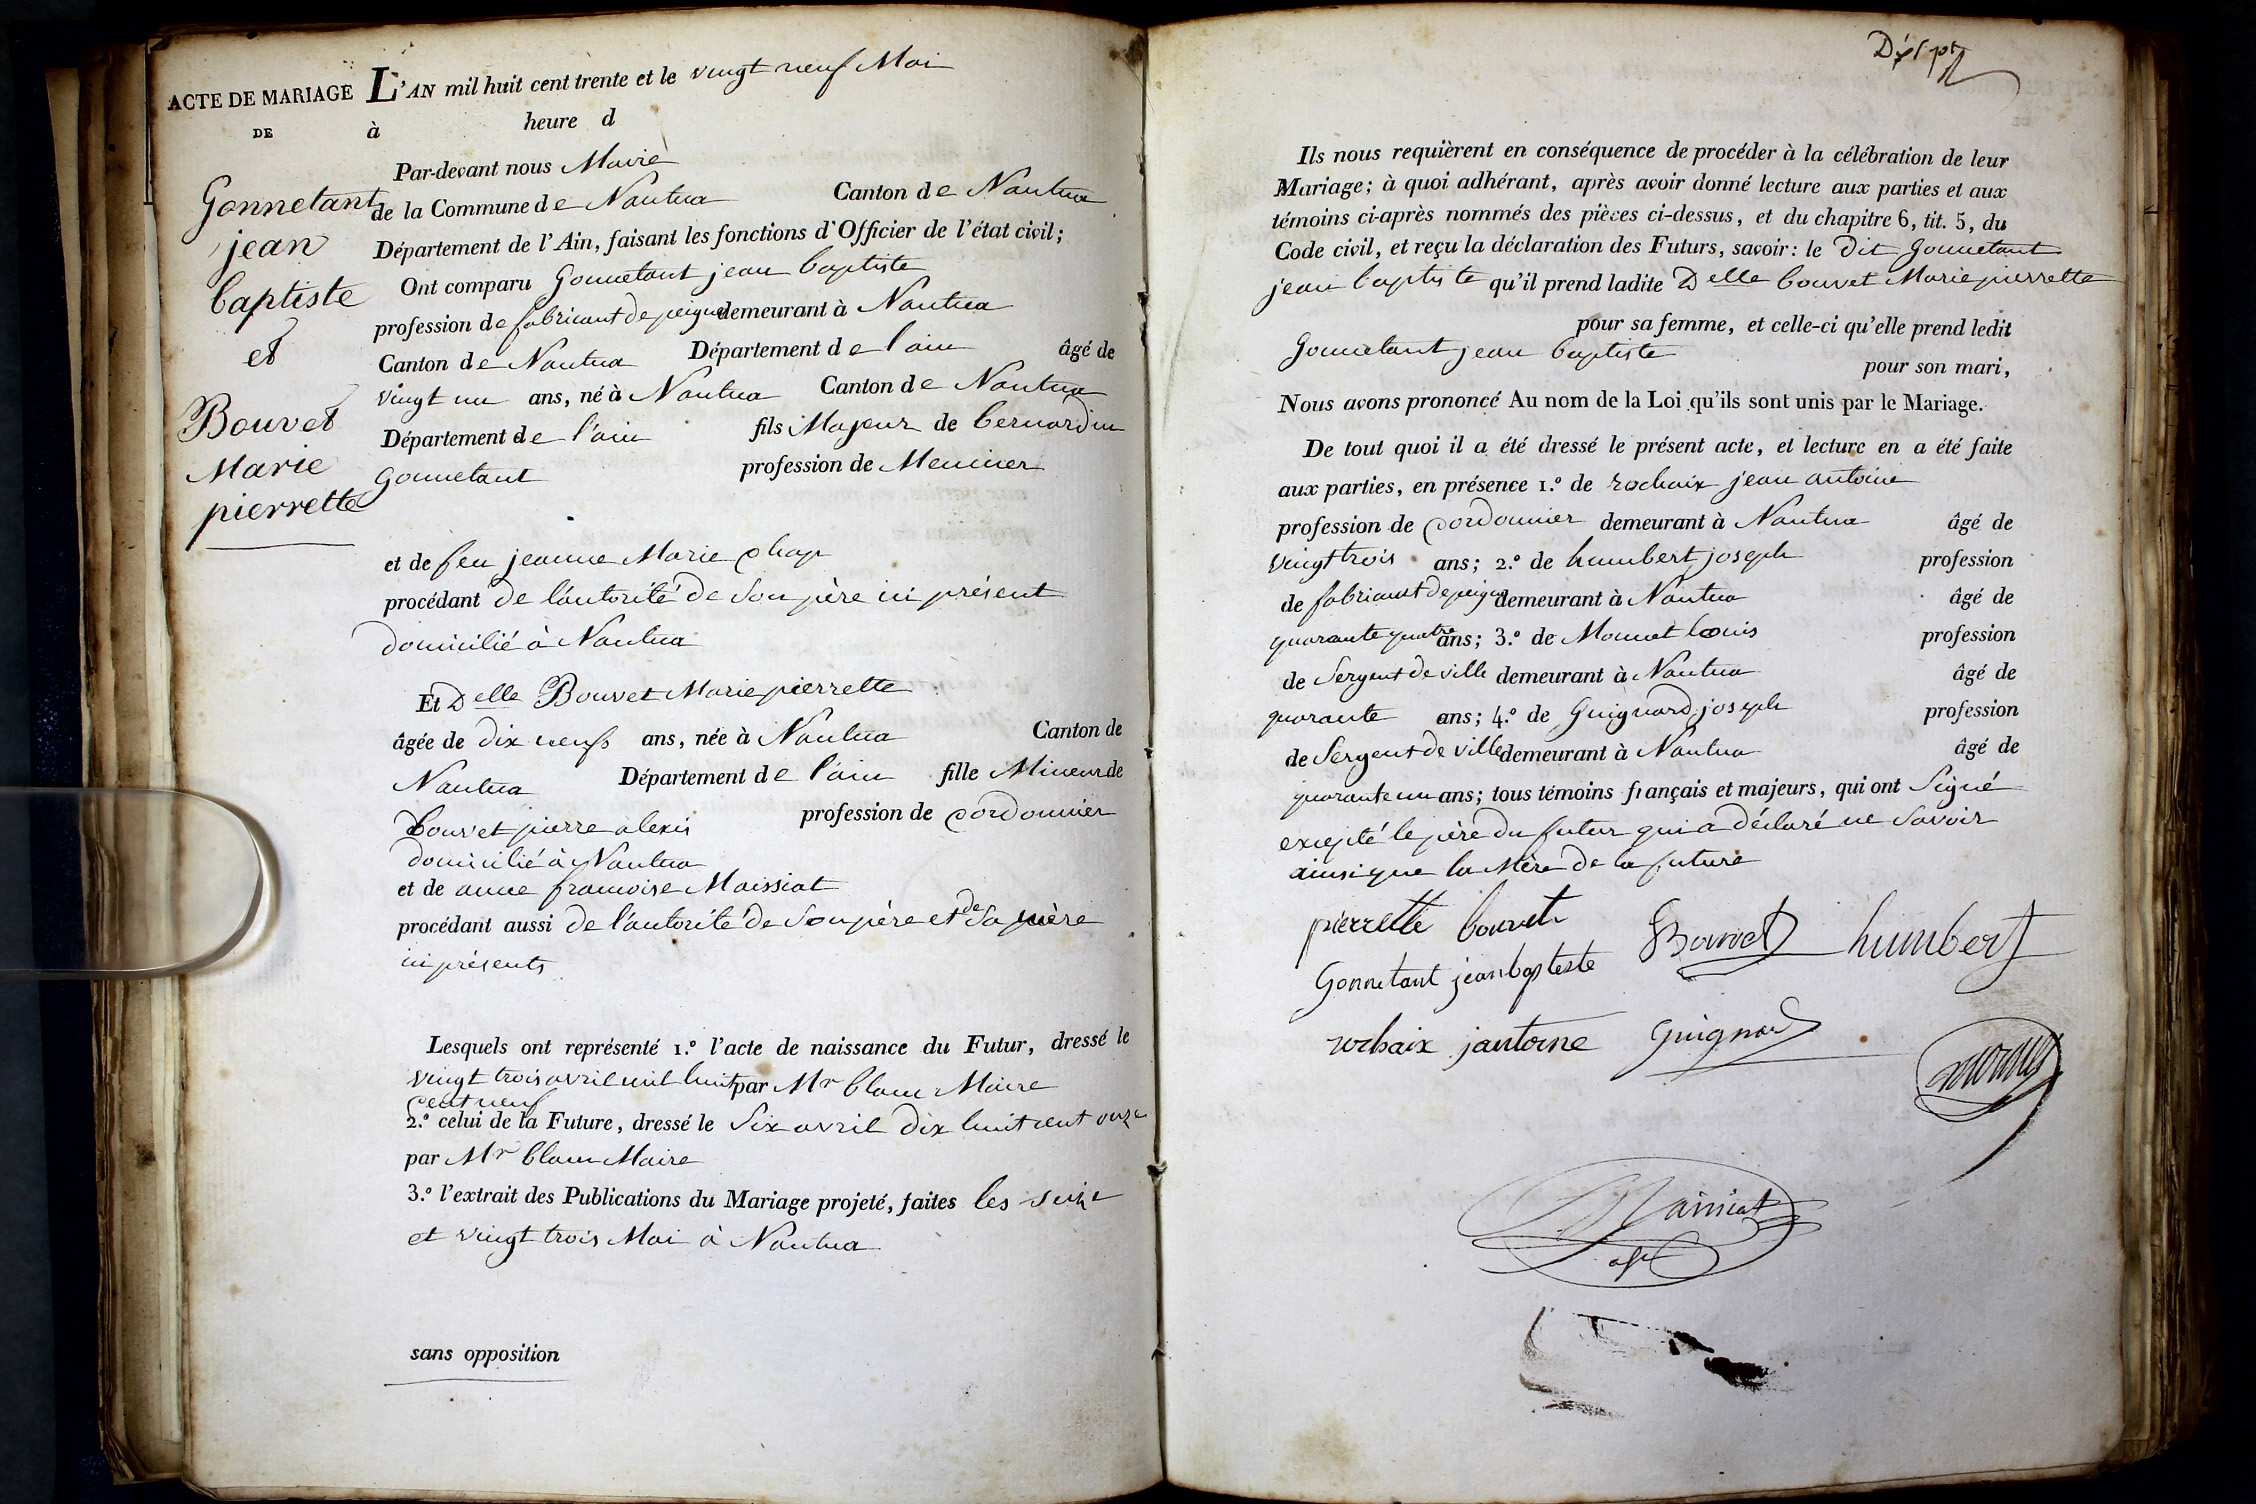 ACTE DE MARIAGE
DE
Gonnetant
jean
baptiste
et
Bouvet
Marie
pierrette
L'AN mil huit cent trente et le vingt neuf Mai
à heure d
Par-devant nous Maire
de la Commune de Nantua Canton de Nantua
Département de l'Ain, faisant les fonctions d'Officier de l'état civil;
Ont comparu Gonnetant jean baptiste
profession de fabricant de peignes demeurant à Nantua
Canton de Nantua Département de l'ain âgé de
vingt un ans, né à Nantua Canton de Nantua
Département de l'ain fils Majeur de bernardin
Gonnetant profession de Meunier
et de feu jeanne Marie Chap
procédant de l'autorité de Son père ici présent
domicilié à Nantua
Et Delle Bouvet Marie pierrette
âgée de dix neuf ans, née à Nantua Canton de
Nantua Département de l'ain fille Mineur de
Bouvet pierre alexis profession de Cordonnier
domicilié à Nantua
et de anne francoise Maissiat
procédant aussi de l'autorité de Son père et de Sa mère
ici présents
Lesquels ont représenté 1.º l'acte de naissance du Futur, dressé le
vingt trois avril mil huit par Mr blanc Maire
Cent neuf
2.º celui de la Future, dressé le Six avril dix huit cent onze
par Mr blanc Maire
3.º l'extrait des Publications du Mariage projeté, faites les seize
et vingt trois Mai à Nantua
sans opposition
Ils nous requièrent en conséquence de procéder à la célébration de leur
Mariage; à quoi adhérant, après avoir donné lecture aux parties et aux
témoins ci-après nommés des pièces ci-dessus, et du chapitre 6, tit. 5, du
Code civil, et reçu la déclaration des Futurs, savoir: le dit Gonnetant
jean baptiste qu'il prend ladite Delle bouvet Marie pierrette
pour sa femme, et celle-ci qu'elle prend ledit
Gonnetant jean baptiste
pour son mari,
Nous avons prononcé Au nom de la Loi qu'ils sont unis par le Mariage.
De tout quoi il a été dressé le présent acte, et lecture en a été faite
aux parties, en présence 1.º de rochaix jean antoine
profession de Cordonnier demeurant à Nantua âgé de
vingt trois ans; 2.º de humbert joseph profession
de fabricant de peignes demeurant à Nantua âgé de
quarante quatre ans; 3.º de Monnet Louis profession
de Sergent de ville demeurant à Nantua âgé de
quarante ans; 4.º de Guignard joseph profession
de Sergent de ville demeurant à Nantua âgé de
quarante un ans; tous témoins français et majeurs, qui ont Signé
excepté le père du futur qui a déclaré ne Savoir
ainsi que la Mère de la future
pierrette bouvet
Bouvet humbert
Gonnetant jean bapteste
rochaix jantoine Guignard
monnet
Maissiat